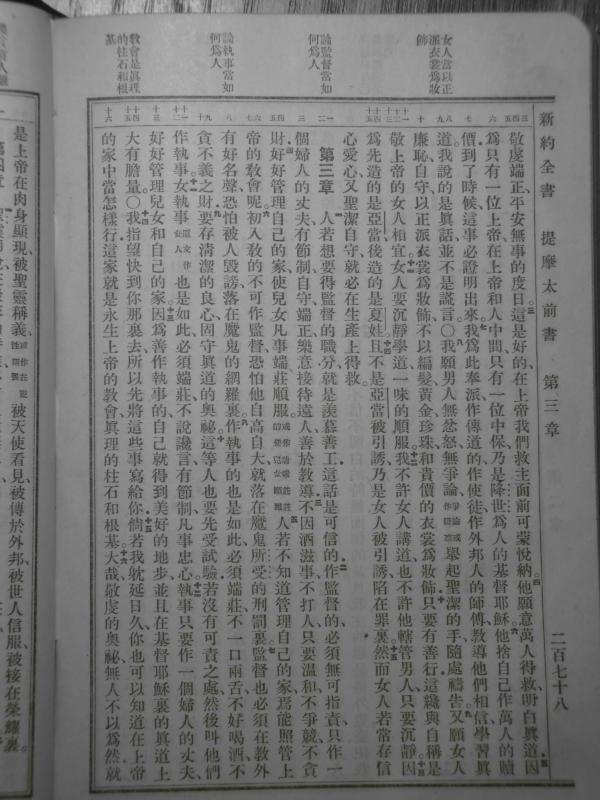 新約全書 提摩太前書 第三章 二百七十八
女人當以正
派衣裳爲妝
飾
論監督當如
何爲人
論執事當如
何爲人
教會是眞理
的柱石和根
基
敬虔端正、平安無事的度日、這是好的、在上帝我們救主面前可蒙悅納、他願意萬人得救、明白眞道、因
爲只有一位上帝、在上帝和人中間、只有一位中保、乃是降世爲人的基督耶穌、他捨自己作萬人的贖
價、到了時候、這事必證明出來、我爲此奉派作傳道的、作使徒、作外邦人的師傅、教導他們相信學習眞
道、我說的是眞話、並不是謊言○我願男人無忿怒、無爭論、舉起聖潔的手、隨處禱告、又願女人
廉恥自守、以正派衣裳爲妝飾、不以編髮黃金珍珠和貴價的衣裳爲妝飾、只要有善行、這纔與自稱是
敬上帝的女人相宜、女人要沉靜學道、一味的順服、我不許女人講道、也不許他轄管男人、只要沉靜、因
爲先造的是亞當、後造的是夏娃、且不是亞當被引誘、乃是女人被引誘、陷在罪裏、然而女人若常存信
心愛心、又聖潔自守、就必在生產上得救。
第三章 人若想要得監督的職分、就是羨慕善工、這話是可信的、作監督的、必須無可指責、只作一
個婦人的丈夫、有節制、自守、端正、樂意接待遠人、善於教導、不因酒滋事、不打人、只要溫和、不爭競、不貪
財、好好管理自己的家、使兒女凡事端莊順服、人若不知道管理自己的家、焉能照管上
帝的教會呢、初入教的不可作監督、恐怕他自高自大、就落在魔鬼所受的刑罰裏、監督也必須在教外
有好名聲、恐怕被人毀謗、落在魔鬼的網羅裏、作執事的也是如此、必須端莊、不一口兩舌、不好喝酒、不
貪不義之財、要存清潔的良心、固守眞道的奧祕、這等人也要先受試驗、若沒有可責之處、然後叫他們
作執事、女執事也是如此、必須端莊、不說讒言、有節制、凡事忠心、執事只要作一個婦人的丈夫、
好好管理兒女和自己的家、因爲善作執事的、自己就得到美好的地步、並且在基督耶穌裏的眞道上
大有膽量○我指望快到你那裏去、所以先將這些事寫給你、倘若我躭延日久、你也可以知道在上帝
的家中當怎樣行、這家就是永生上帝的教會、眞理的柱石和根基、大哉敬虔的奧祕、無人不以爲然、就
是上帝在肉身顯現、被聖靈稱義、被天使看見、被傳於外邦、被世人信服、被接在榮耀裏。